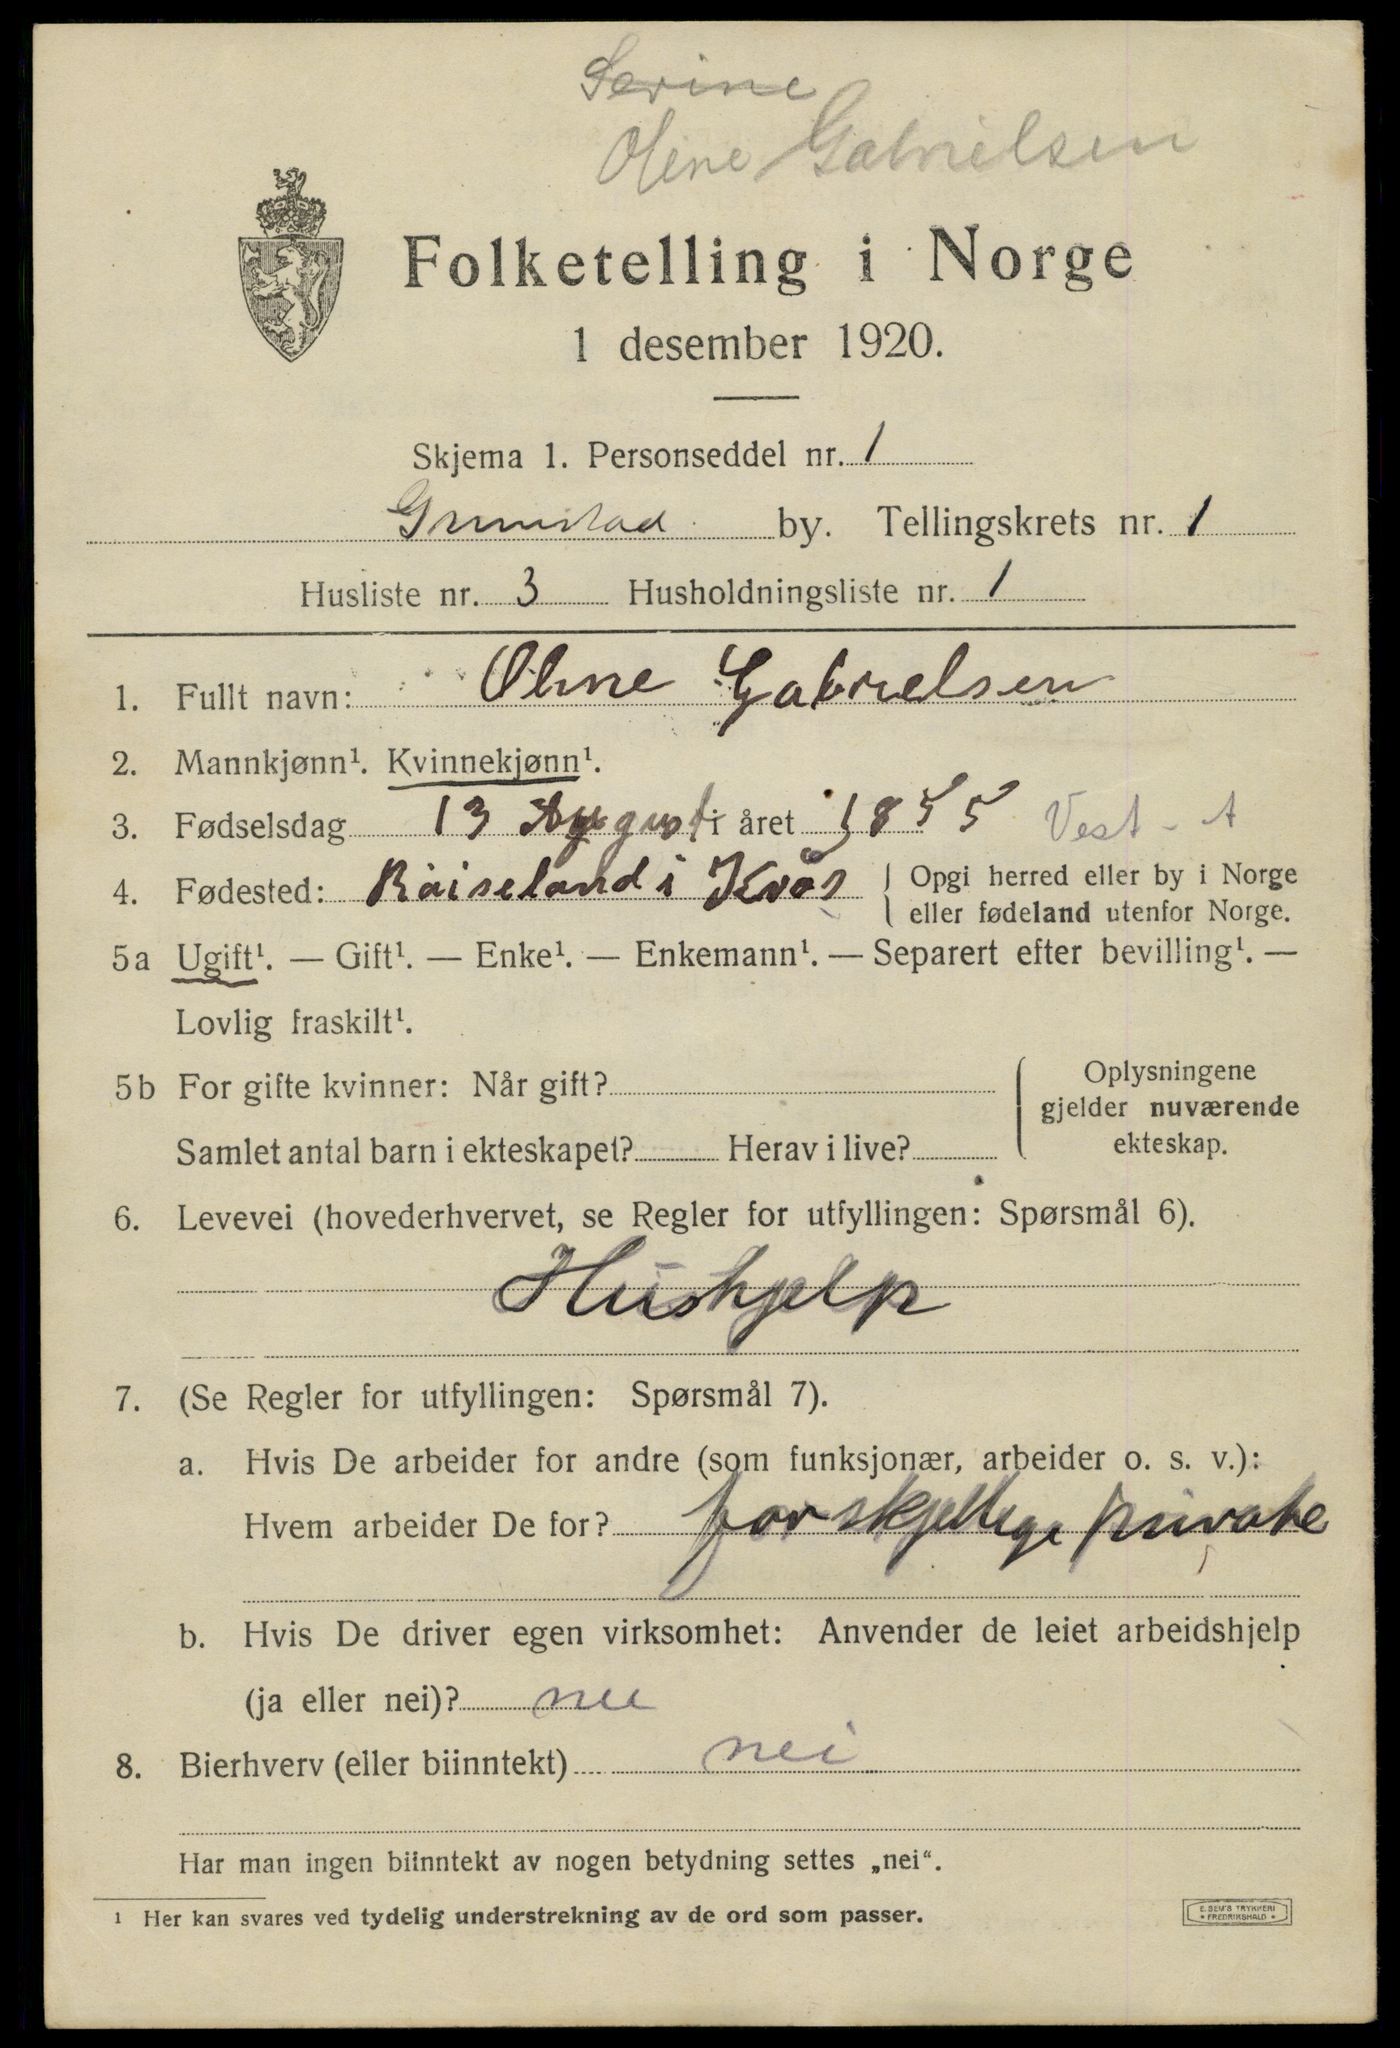 Serine
Olene Gabrielsen
Folketelling i Norge
1 desember 1920.
Skjema 1. Personseddel nr. 1
Grimstad by. Tellingskrets nr. 1
Husliste nr. 3 Husholdningsliste nr. 1
1. Fullt navn: Olene Gabrielsen
2. Mannkjønn¹. Kvinnekjønn¹.
3. Fødselsdag 13 August i året 1855 Vest-A
4. Fødested: Røiseland i Kvås { Opgi herred eller by i Norge
eller fødeland utenfor Norge.
5a Ugift¹. — Gift¹. — Enke¹. — Enkemann¹. — Separert efter bevilling¹. —
Lovlig fraskilt¹.
5b For gifte kvinner: Når gift? { Oplysningene
gjelder nuværende
Samlet antal barn i ekteskapet? Herav i live? ekteskap.
6. Levevei (hovederhvervet, se Regler for utfyllingen: Spørsmål 6).
Hushjelp
7. (Se Regler for utfyllingen: Spørsmål 7).
a. Hvis De arbeider for andre (som funksjonær, arbeider o. s. v.):
Hvem arbeider De for? forskjellige private
b. Hvis De driver egen virksomhet: Anvender de leiet arbeidshjelp
(ja eller nei)? nei
8. Bierhverv (eller biinntekt) nei
Har man ingen biinntekt av nogen betydning settes „nei“.
¹ Her kan svares ved tydelig understrekning av de ord som passer.
E. SEM'S TRYKKERI
• FREDRIKSHALD •